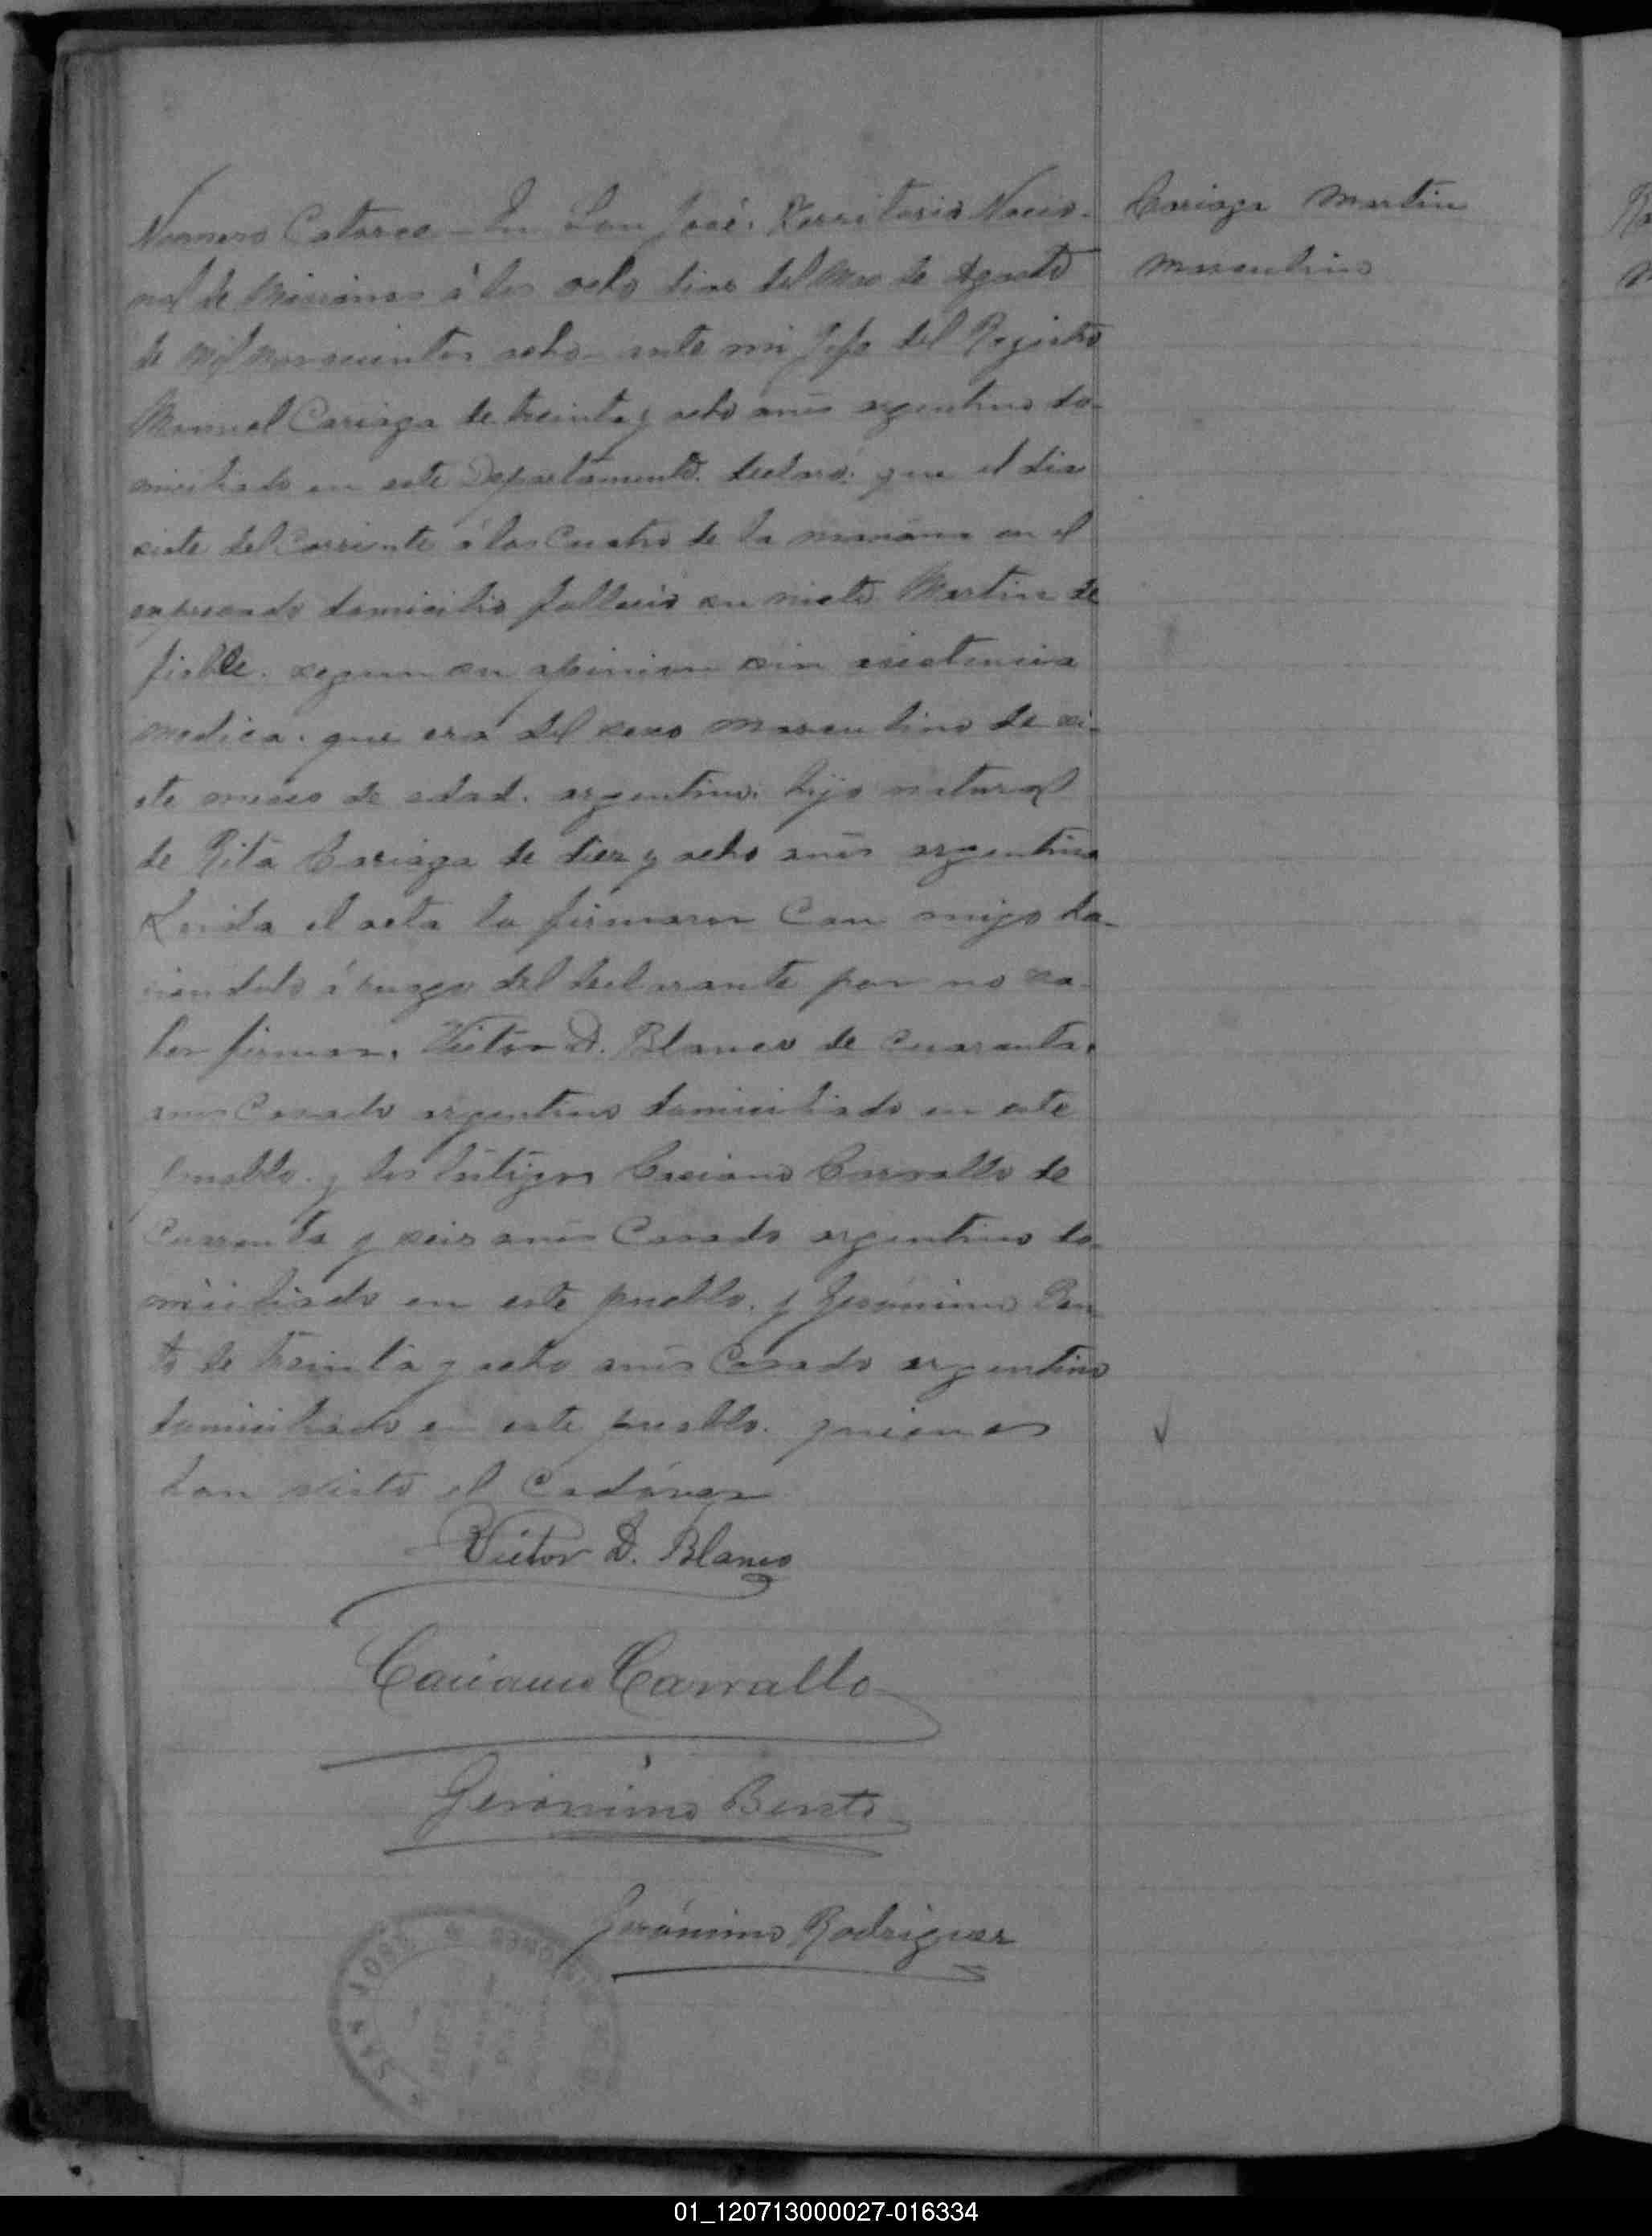 Cariaga Martin
masculino
Numero Catorce - En San José, Territorio Nacio-
nal de Misiones á los ocho dias del Mes de Agosto
de mil novecientos ocho ante mi Jefe del Registro
Manuel Cariaga de treinta y ocho años argentino do-
miciliado en este Departamento. declaró: que el dia
siete del Corriente á las Cuatro de la manãna en el
expresado domicilio fallecio su nieto Martin de
fiebre. segun su opinion sin asistencia
medica. que era del sexo masculino de si-
ete meses de edad. argentino. hijo natural
de Rita Cariaga de diez y ocho años argentina
Leida el acta la firmaron Con migo ha-
ciendolo á ruego del declarante por no sa-
ber firmar, Victor D. Blanco de Cuarenta
años Casado argentino domiciliado en este
pueblo. y los testigos Caciano Carvallo de
Cuarenta y seis años Casado argentino do-
miciliado en este pueblo. y Jeronimo Ben
to de treinta y ocho años Casado argentino
domiciliado en este pueblo. quienes
han visto el Cadáver
Victor D. Blanco
Caciano Carvallo
Geronimo Bento
Jerónimo Rodriguez
SAN JOSÉ
01_120713000027-016334